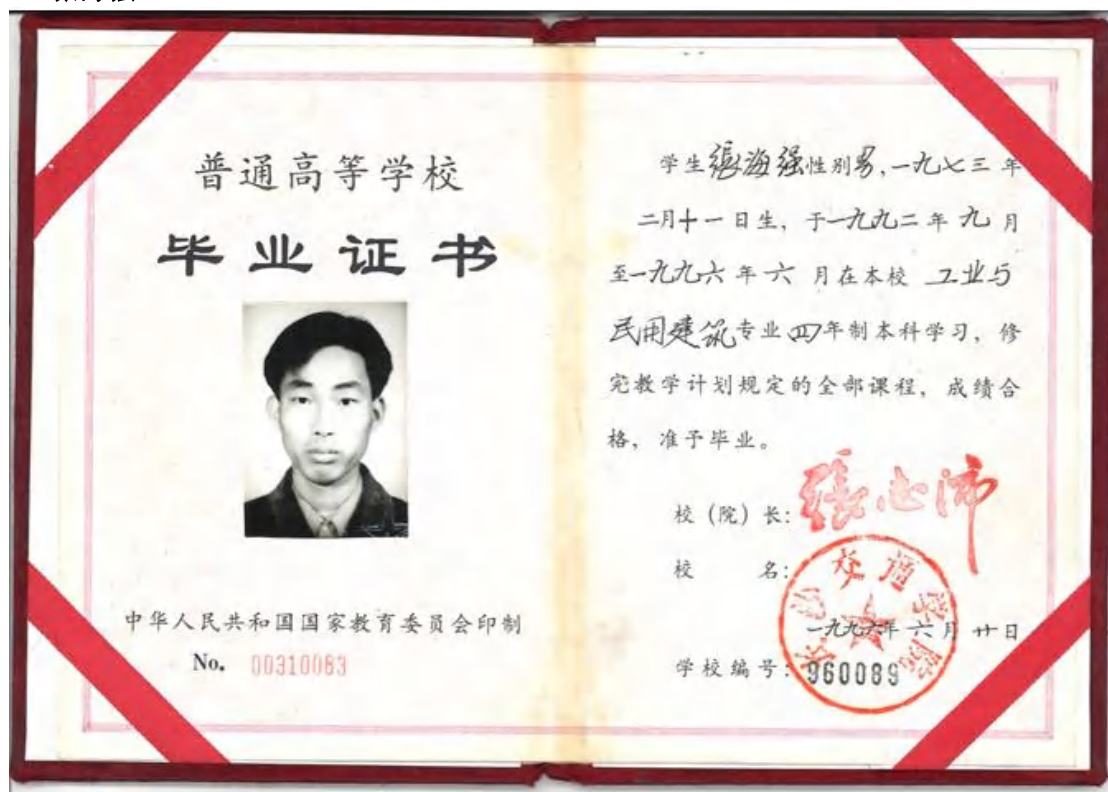 普通高等学校
毕业证书
中华人民共和国国家教育委员会印制
No. 00310083
学生張海强性别男,一九七三年
二月十一日生,于一九九二年九月
至一九九六年六 月在本校 工业与
民用建筑专业四年制本科学习,修
完教学计划规定的全部课程,成绩合
格,准予毕业。
校(院)长:
校 名:长沙交通学院
一九九六年六月廿日
学校编号:960089